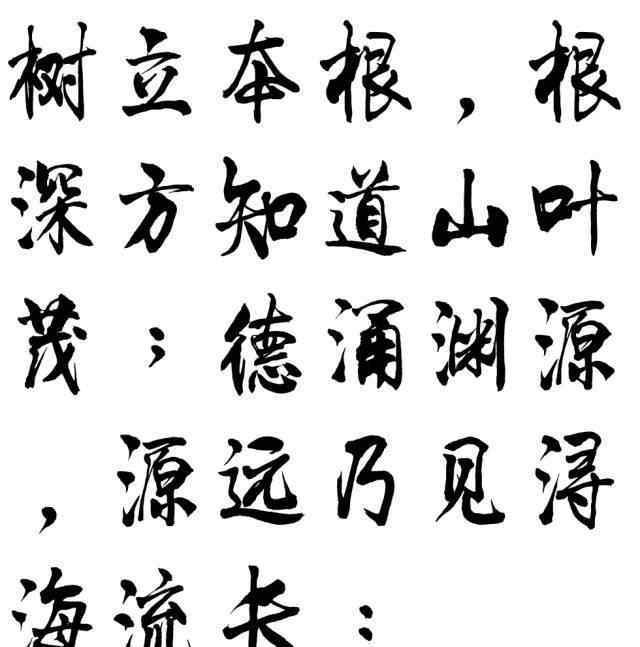 树立本根，根
深方知道山叶
茂；德涌渊源
，源远乃见浔
海流长：